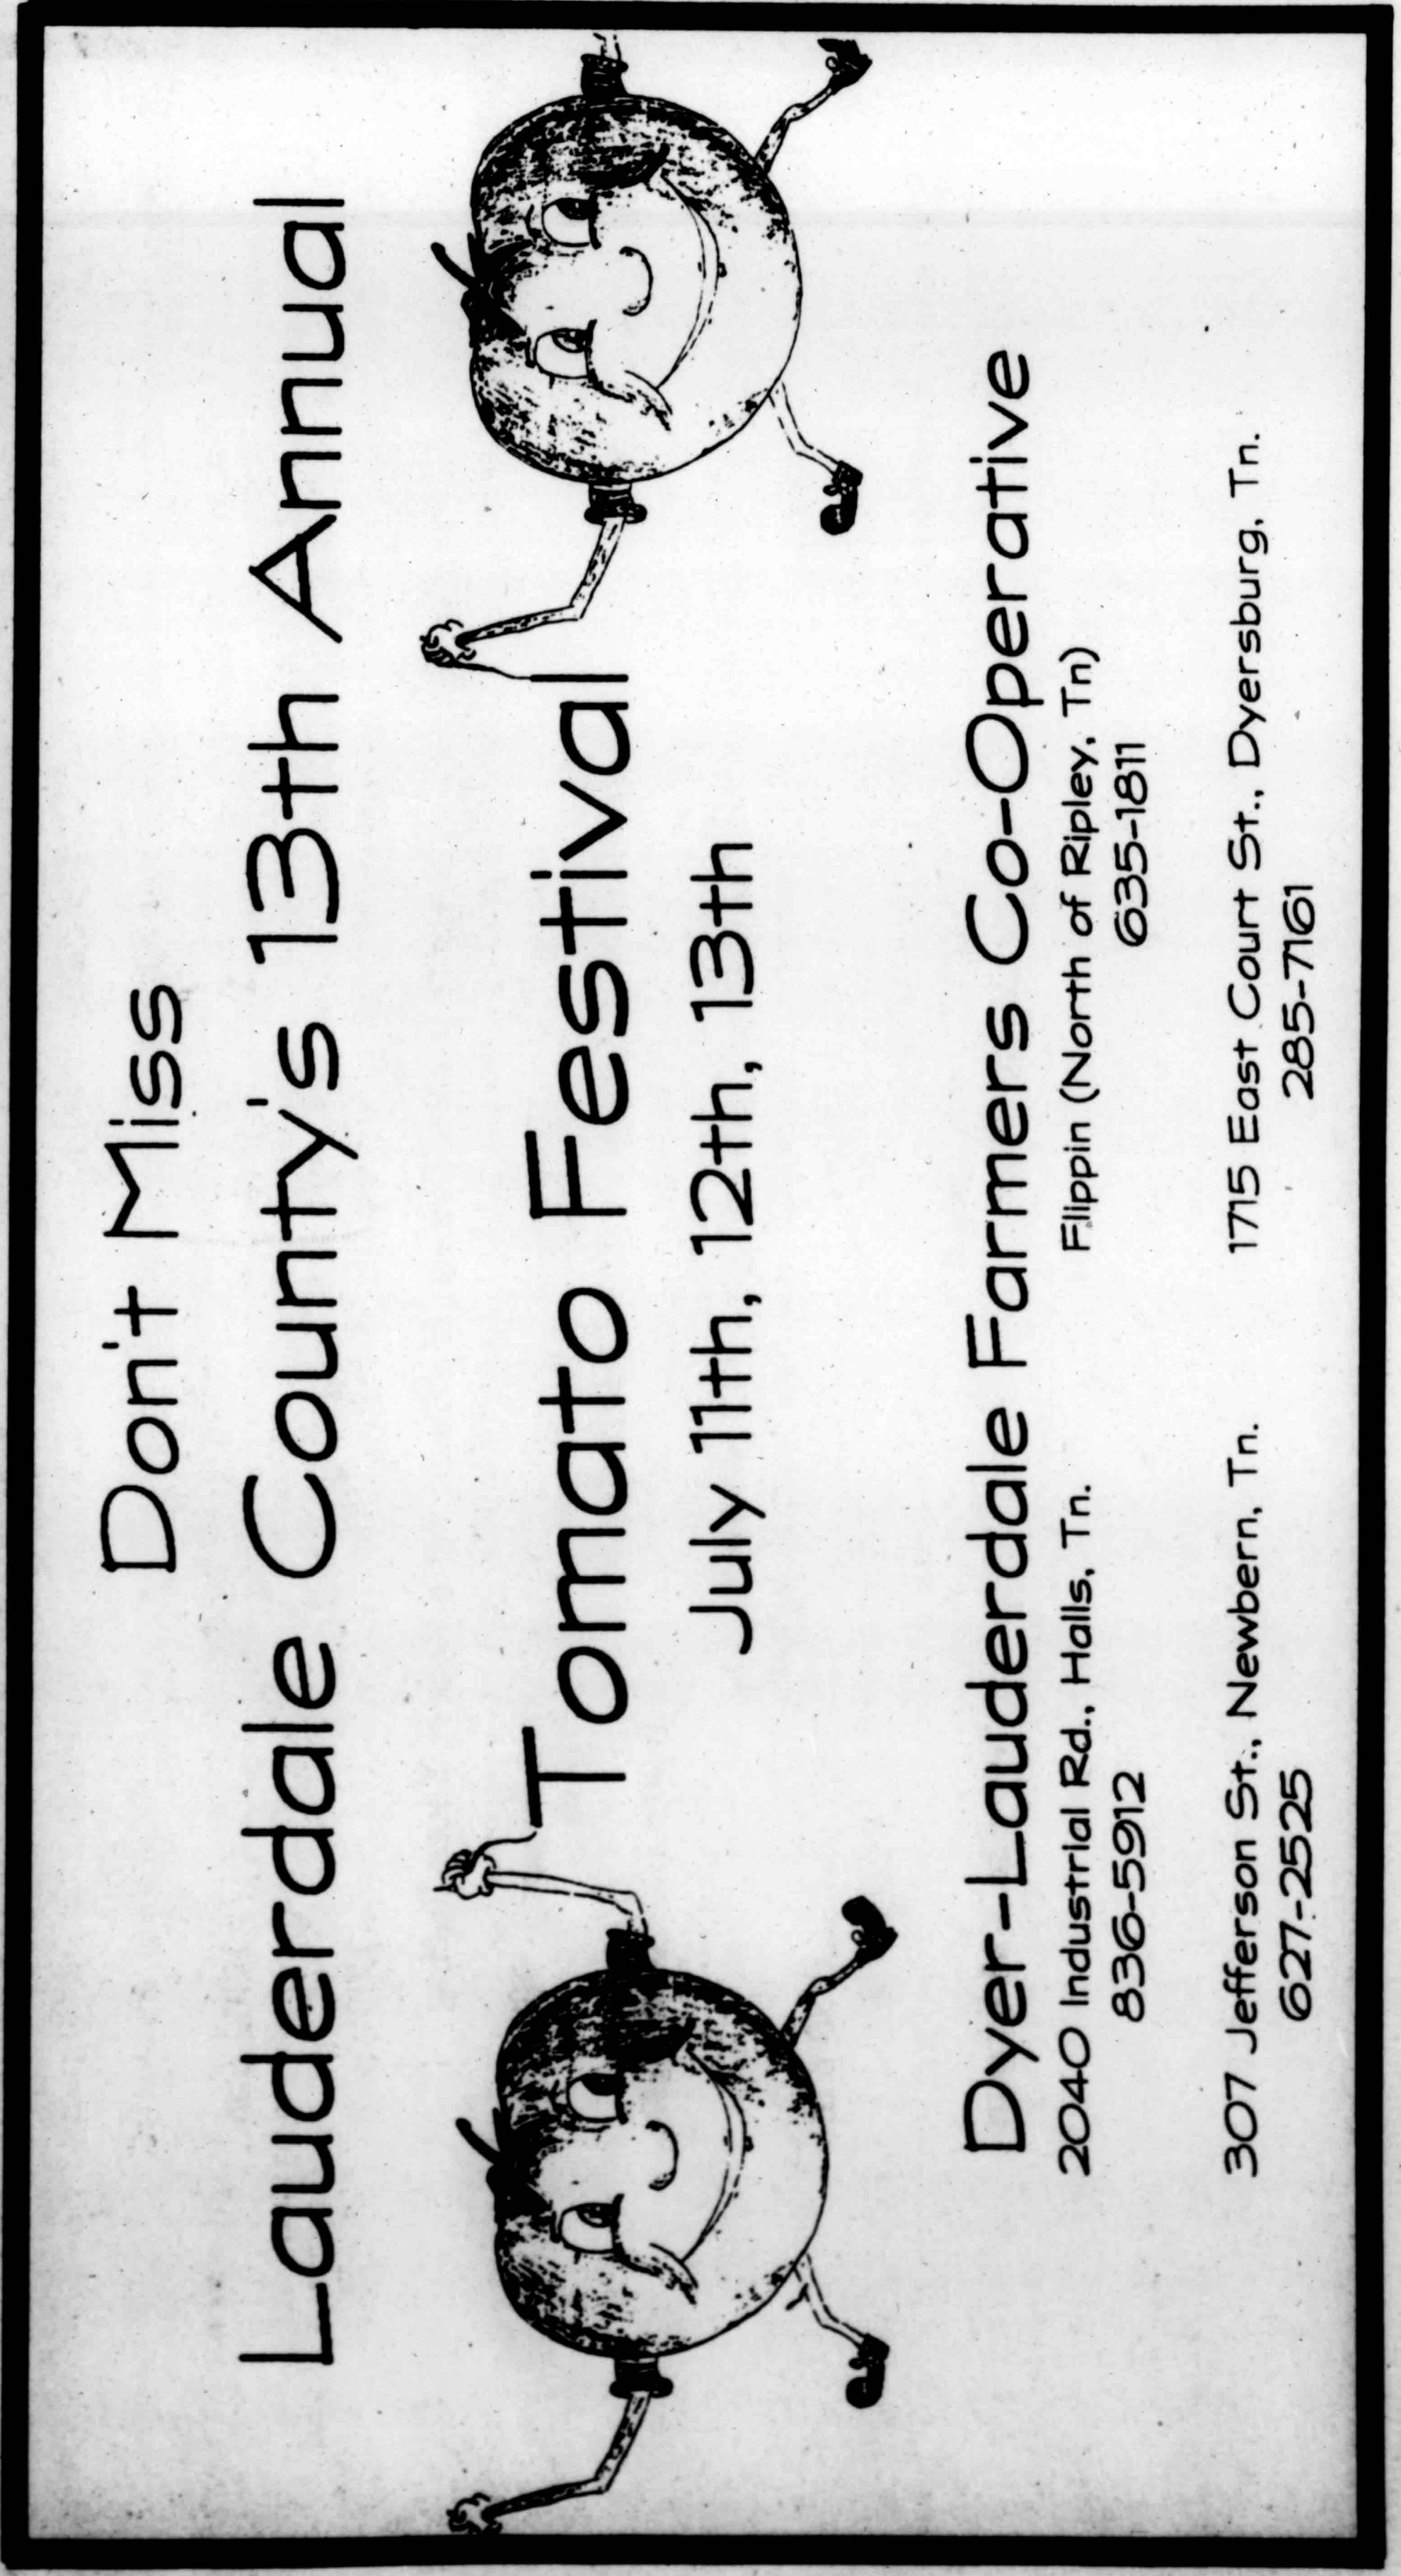 Don't Miss
Lauderdale County's 13th Annual
Tomato Festival
July 11th, 12th, 13th
Dyer-Lauderdale Farmers Co-Operative
2040 Industrial Rd., Halls, Tn.
836-5912
Flippin (North of Ripley, Tn)
635-1811
307 Jefferson St., Newbern, Tn.
627-2525
1715 East Court St., Dyersburg, Tn.
285-7161